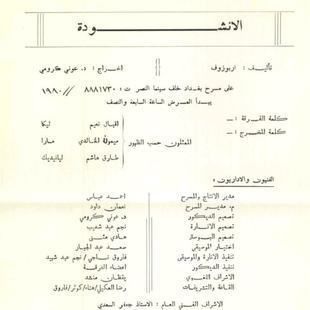 الانشودة
تأليف : اربوزوف
اخراج : د. عوني كرومي
على مسرح بغداد خلف سينما النصر ت : ٨٨٨١٧٣٠
١٩٨٠/ /
يبدأ العرض الساعة السابعة والنصف
كلمة الفرقة : ــ
كلمة المخرج : ــ
الممثلون حسب الظهور
اقبال نعيم
ليكا
ميمون الخالدي
مارا
طارق هاشم
ليانيديك
الفنيون والاداريون :
مدير الانتاج والمسرح
احمد عباس
م. مدير المسرح
نعمان داود
تصميم الديكور
د. عوني كرومي
تصميم الانارة
نجم عبد شهيب
تصميم البوستر
هادي
اختيار الموسيقى
سعد عبد الجبار
تنفيذ الانارة والموسيقى
فاروق / نجم عبد شهيد
تنفيذ الديكور
اعضاء الفرقة
الاشراف اللغوي
يقظان
رضا / هناء / كوثر / فاروق
الاشراف الفني العام : الاستاذ جعفر السعدي